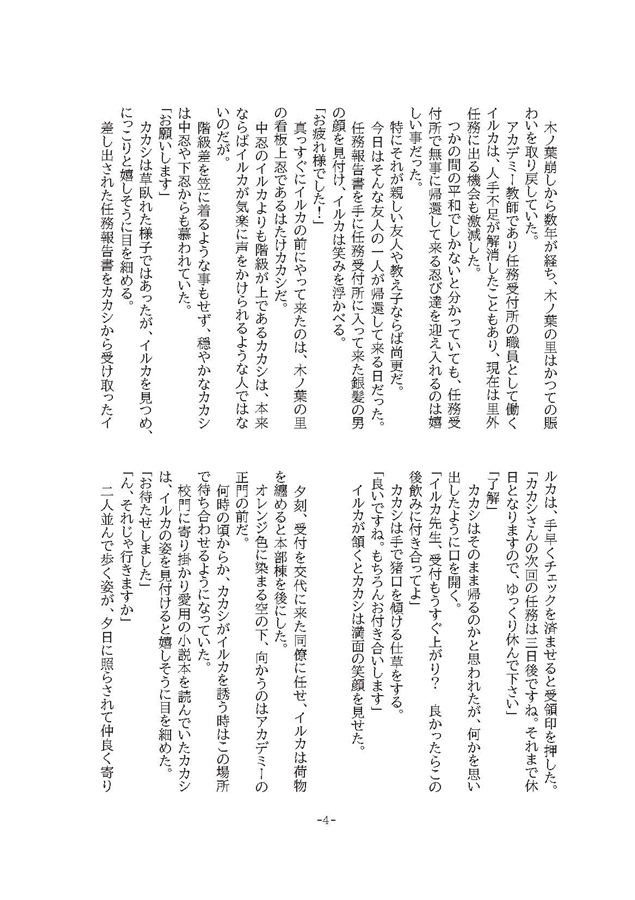 木ノ葉崩しから数年が経ち、木ノ葉の里はかつての賑
わいを取り戻していた。
　アカデミー教師であり任務受付所の職員として働く
イルカは、人手不足が解消したこともあり、現在は里外
任務に出る機会も激減した。
　つかの間の平和でしかないと分かっていても、任務受
付所で無事に帰還して来る忍び達を迎え入れるのは嬉
しい事だった。
　特にそれが親しい友人や教え子ならば尚更だ。
　今日はそんな友人の一人が帰還して来る日だった。
　任務報告書を手に任務受付所に入って来た銀髪の男
の顔を見付け、イルカは笑みを浮かべる。
「お疲れ様でした！」
　真っすぐにイルカの前にやって来たのは、木ノ葉の里
の看板上忍であるはたけカカシだ。
　中忍のイルカよりも階級が上であるカカシは、本来
ならばイルカが気楽に声をかけられるような人ではな
いのだが。
　階級差を笠に着るような事もせず、穏やかなカカシ
は中忍や下忍からも慕われていた。
「お願いします」
　カカシは草臥れた様子ではあったが、イルカを見つめ、
にっこりと嬉しそうに目を細める。
　差し出された任務報告書をカカシから受け取ったイ
ルカは、手早くチェックを済ませると受領印を押した。
「カカシさんの次回の任務は三日後ですね。それまで休
日となりますので、ゆっくり休んで下さい」
「了解」
　カカシはそのまま帰るのかと思われたが、何かを思い
出したように口を開く。
「イルカ先生、受付もうすぐ上がり？　良かったらこの
後飲みに付き合ってよ」
　カカシは手で猪口を傾ける仕草をする。
「良いですね。もちろんお付き合いします」
　イルカが頷くとカカシは満面の笑顔を見せた。
　夕刻、受付を交代に来た同僚に任せ、イルカは荷物
を纏めると本部棟を後にした。
　オレンジ色に染まる空の下、向かうのはアカデミーの
正門の前だ。
　何時の頃からか、カカシがイルカを誘う時はこの場所
で待ち合わせるようになっていた。
　校門に寄り掛かり愛用の小説本を読んでいたカカシ
は、イルカの姿を見付けると嬉しそうに目を細めた。
「お待たせしました」
「ん、それじゃ行きますか」
　二人並んで歩く姿が、夕日に照らされて仲良く寄り
-4-